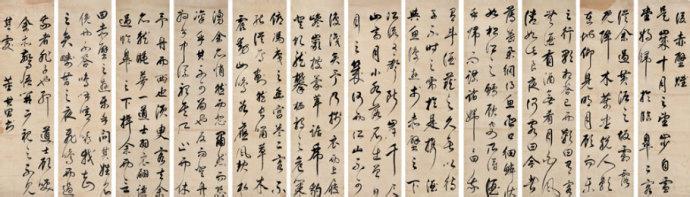 後赤壁賦
是歲十月之望步自雪
堂將歸於臨皋二客
從余過黃泥之坂霜露
既降木葉盡脫人影
在地仰見明月顧而樂
之行歌相答已而歎曰有客
無酒有酒無肴月白風
清如此良夜何客曰今者
薄暮舉網得魚巨口細鱗狀
如松江之鱸顧安所得酒
乎歸而謀諸婦婦曰我
有斗酒藏之久矣以待
子不時之需於是攜酒
與魚復遊於赤壁之下
江流有聲斷岸千尺
山高月小水落石出曾日
月之幾何而江山不可
復識矣予乃攝衣而上履
巉巖披蒙茸踞虎豹
登虬龍攀栖鶻之危巢
俯馮夷之幽宮蓋二客不
能從焉劃然長嘯草木
震動山鳴谷應風起水
湧予亦悄然而悲肅然而恐
凜乎其不可留也反而登舟
放乎中流聽其所止而休
予舟而西也須臾客去余亦
就睡夢一道士羽衣翩躚
過臨皋之下揖余而言
曰赤壁之遊樂乎問其姓名
俛而不答嗚呼噫嘻我
知之矣疇昔之夜飛鳴而過
我者非子也耶道士顧笑
余亦驚悟開戶視之不見
其處 董其昌